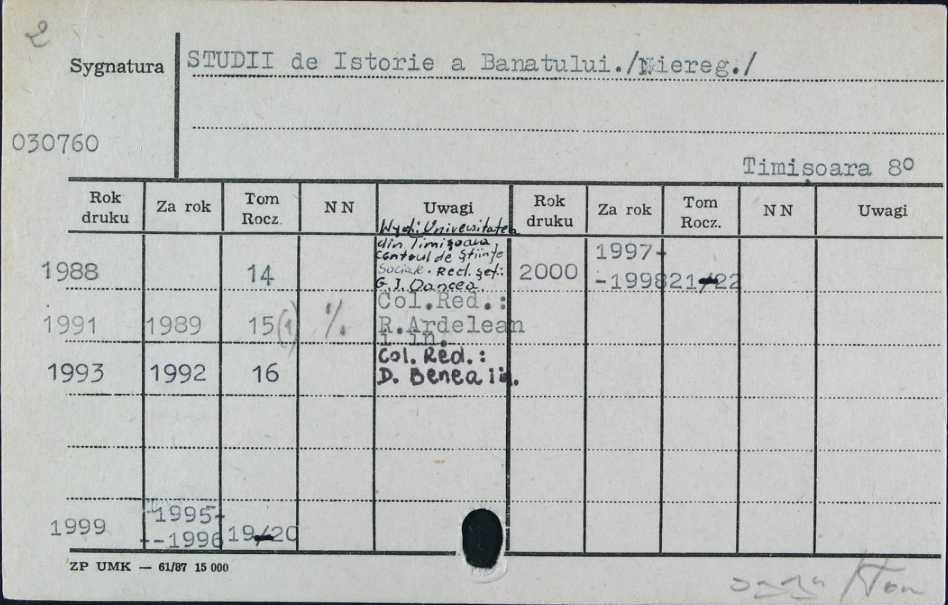 2
Sygnatura STUDII de Istorie a Banatului./Niereg./
030760
Timişoara 8º
Rok druku Za rok Tom Rocz. NN Uwagi Rok druku Za rok Tom Rocz. NN Uwagi
Wyd: Universitatea
din Timişoara
Centrul de Ştiinţe
Sociale. Red. şef:
G. I. Oancea.
1988 14
2000 1997-
-1998 21/22
1991 1989 15(i) ·/. Col.Red.:
R.Ardelean
i in.
1993 1992 16 Col. Red.:
D. Benea i in.
1999 1995-
-1996 19/20
ZP UMK — 61/87 15 000